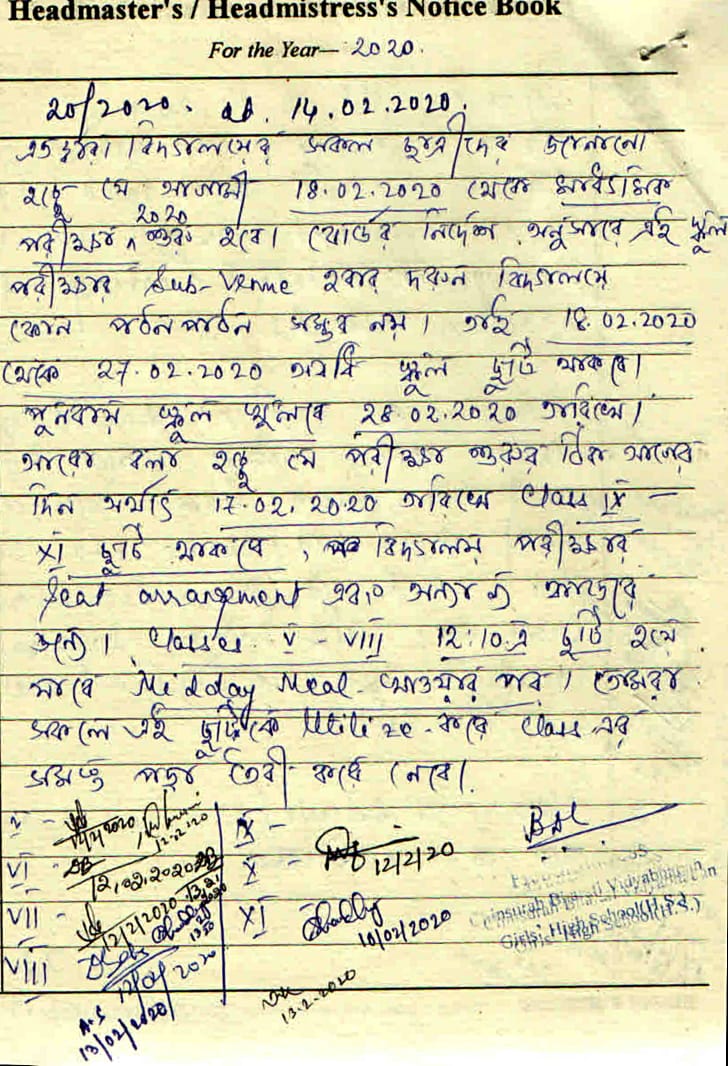 Headmaster's / Headmistress's Notice Book
For the Year— 2020.
20/2020. dt. 14.02.2020.
এতদ্বারা বিদ্যালয়ের সকল ছাত্রীদের জানানো
হচ্ছে যে আগামী 18.02.2020 থেকে মাধ্যমিক
পরীক্ষা ^ 2020 শুরু হবে। বোর্ডের নির্দেশ অনুসারে এই স্কুল
পরীক্ষার Sub-Venue হবার দরুন বিদ্যালয়ে
কোন পঠনপাঠন সম্ভব নয়। তাই 18.02.2020
থেকে 27.02.2020 অবধি স্কুল ছুটি থাকবে।
পুনরায় স্কুল খুলবে 28.02.2020 তারিখে।
আরো বলা হচ্ছে যে পরীক্ষা শুরুর ঠিক আগের
দিন অর্থাৎ 17.02.2020 তারিখে Class IX –
XI ছুটি থাকবে, বিদ্যালয় পরীক্ষার
Seat arrangement এবং অন্যান্য কাজের
জন্য। Classes V - VIII 12:10 এ ছুটি হয়ে
যাবে Midday Meal খাওয়ার পর। তোমরা
সকলে এই ছুটিকে Utilize করে Class এর
সমস্ত পড়া তৈরী করে নেবে।
V - 12/2/2020 12.2.2020
VI - 12.02.2020
VII - 12/2/2020
VIII 12/02/2020
A.S 13/02/2020
IX -
X - 12/2/20
XI 10/02/2020
13.2.2020
Chinsurah Vidyabhavan
Girls' High School (H.S.)